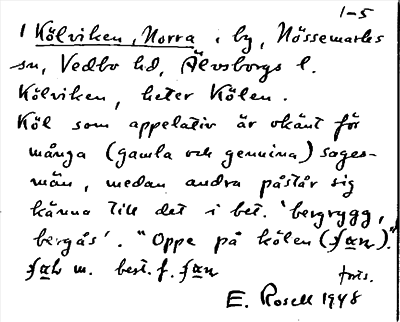 1-5
1 Kölviken, Norra, by, Nössemarks
sn, Vedbo hd, Älvsborgs l.
Kölviken, heter Kölen.
Köl som appelativ är okänt för
många (gamla och genuina) sages-
män, medan andra påstår sig
känna till det i bet. 'bergrygg,
bergås'. "Oppe på kölen ( )."
m. best. f.
forts.
E. Rosell 1948